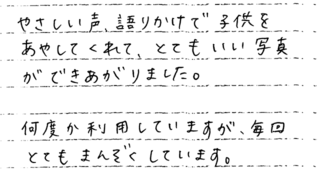 やさしい声、語りかけで子供を
あやしてくれて、とてもいい写真
ができあがりました。
何度か利用していますが、毎回
とてもまんぞくしています。